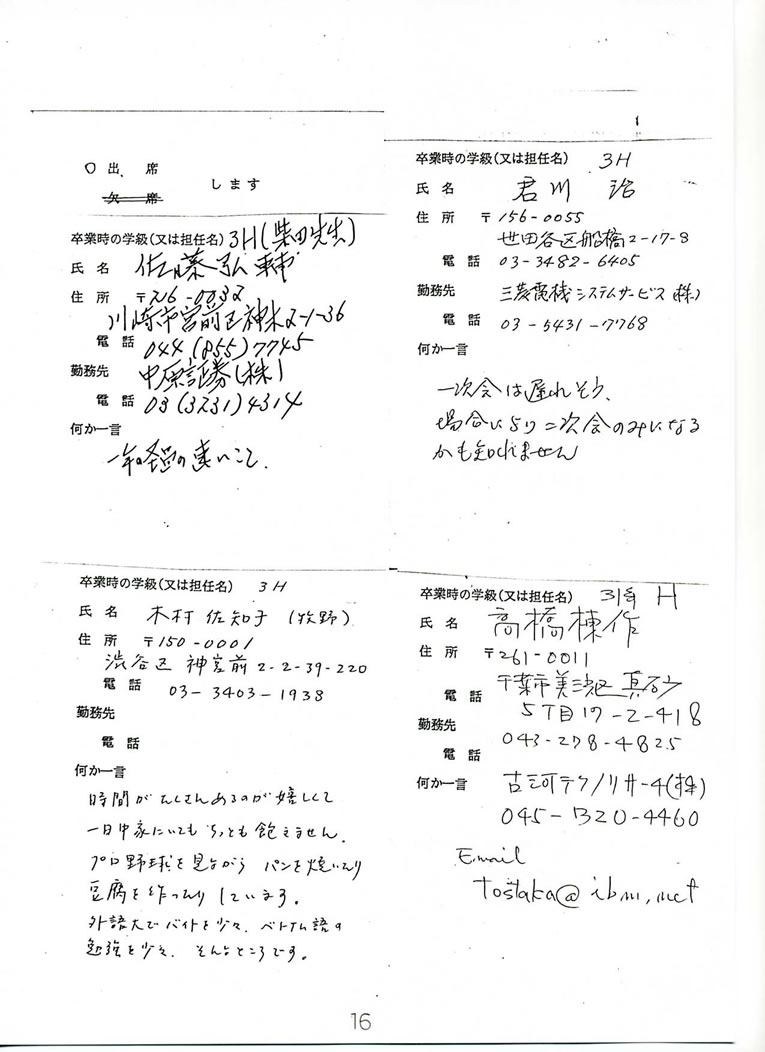 〇出 席
欠 席
します
卒業時の学級(又は担任名) 3H(柴田先生)
氏 名 佐藤弘
住 所 〒216-0032
川崎市宮前区神木2-1-36
電 話 044(855)7745
勤務先 中原証券(株)
電 話 03(3231)4314
何か一言
年の経過の速いこと.
卒業時の学級(又は担任名) 3H
氏 名 君川 治
住 所 〒156-0055
世田谷区船橋2-17-8
電 話 03-3482-6405
勤務先 三菱電機システムサービス(株)
電 話 03-5431-7768
何か一言
一次会は遅れそう、
場合により二次会のみになる
かも知れません
卒業時の学級(又は担任名) 3H
氏 名 木村 佐知子 (牧野)
住 所 〒150-0001
渋谷区 神宮前2-2-39-220
電 話 03-3403-1938
勤務先
電 話
何か一言
時間がたくさんあるのが嬉しくて
一日中家にいても ちっとも飽えません.
プロ野球を見ながら パンを焼いたり
豆腐を作ったり しています。
外語大でバイトを少々、ベトナム語の
勉強を少々、そんなところです。
卒業時の学級(又は担任名) 3年 H
氏 名 高橋棟作
住 所 〒261-0011
千葉市美浜区真砂
電 話 5丁目17-2-418
勤務先 043-278-4825
電 話
何か一言 古河テクノリサーチ(株)
045-320-4460
E.mail
tostaka@ibm.net
16